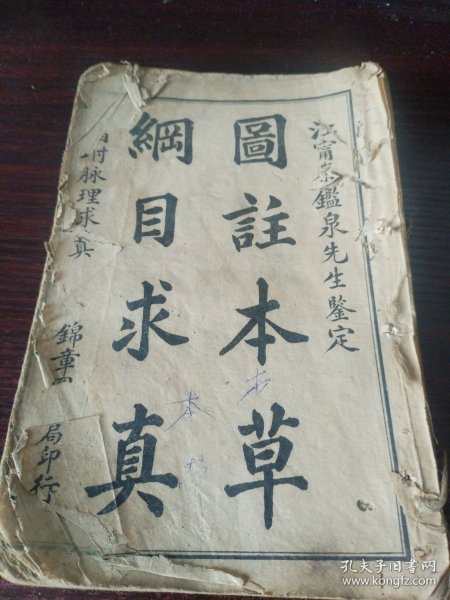 江甯
鑑泉先生鑒定
圖註本草
綱目求真
附脉理求真
錦章
局印行
本
本
孔夫子旧书网
www.kongfz.com